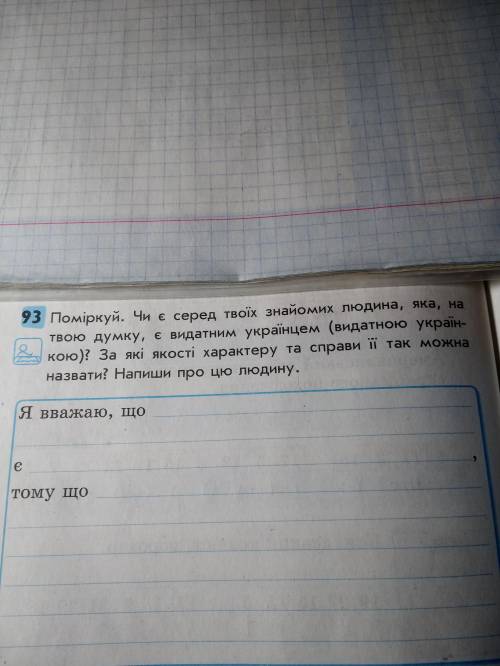 93 Поміркуй. Чи є серед твоїх знайомих людина, яка, на
твою думку, є видатним українцем (видатною україн-
кою)? За які якості характеру та справи її так можна
назвати? Напиши про цю людину.
Я вважаю, що
є ,
тому що